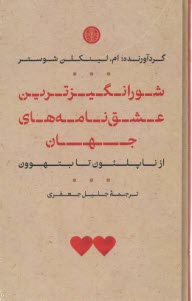 گردآورنده: ام. لینکلن شوستر
شورانگیزترین
عشق‌نامه‌های
جهان
از ناپلئون تا بتهوون
ترجمهٔ جلیل جعفری